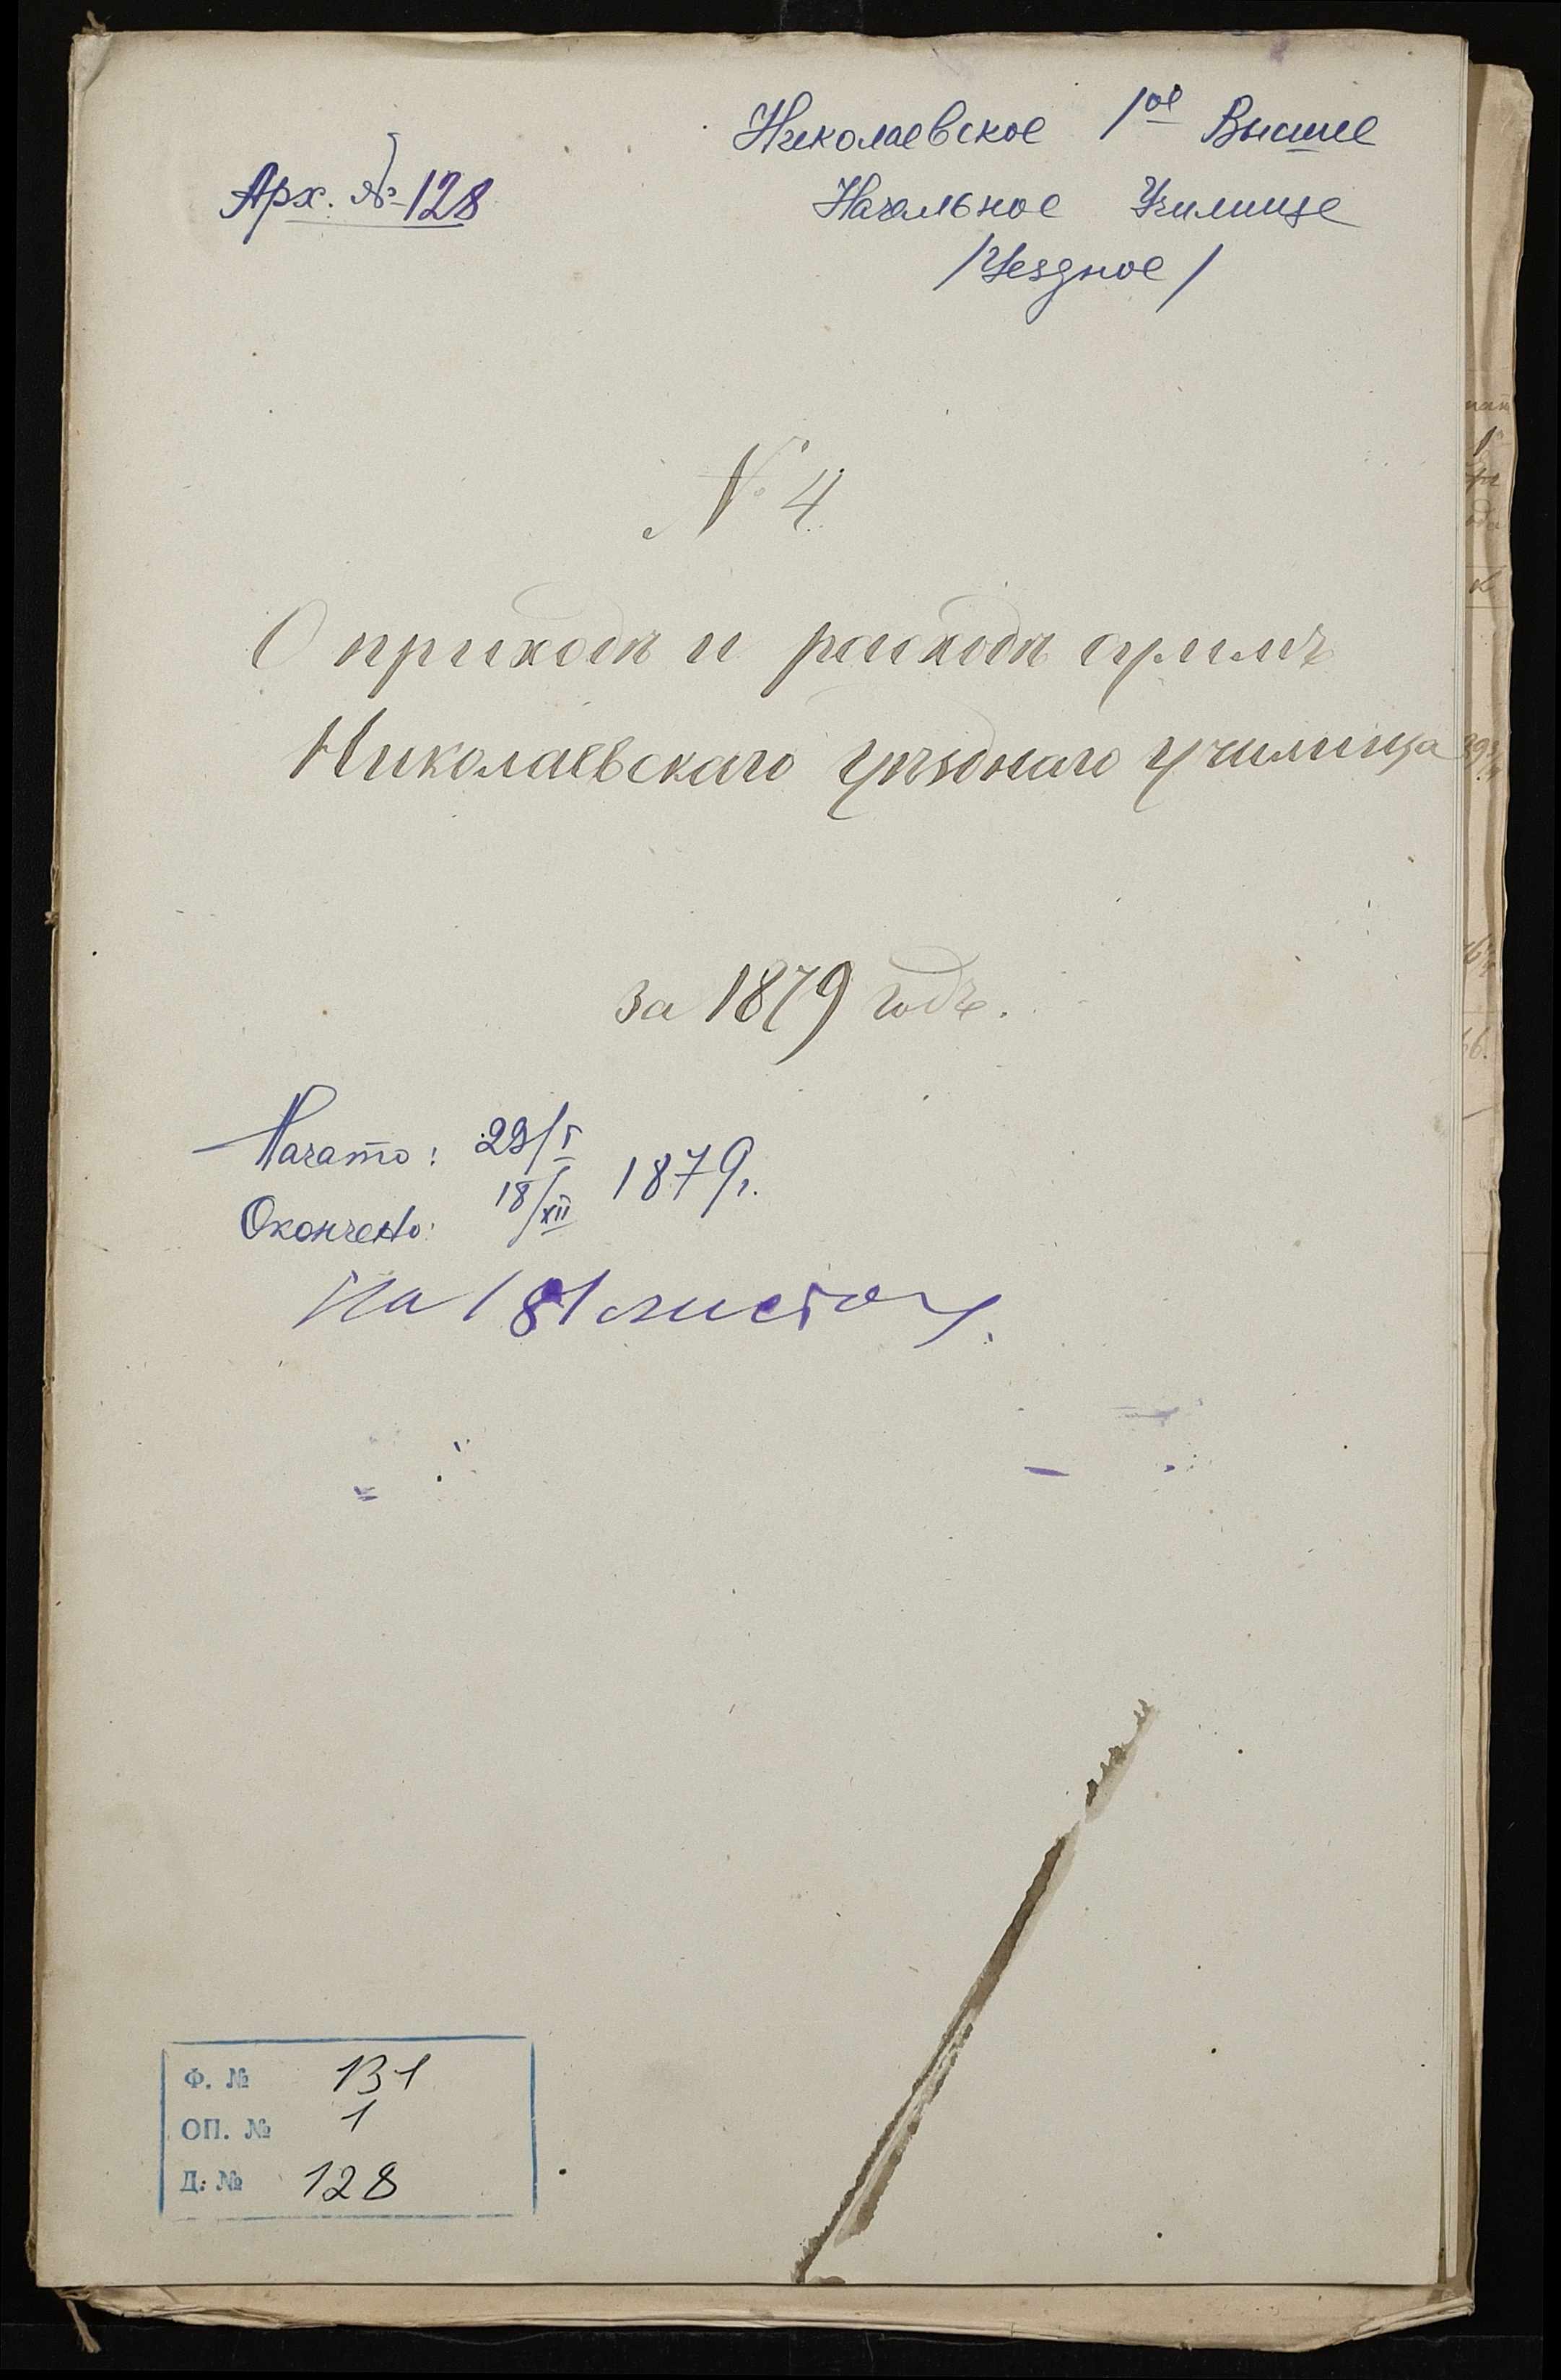 Николаевское 1ое Высшее
Арх. № 128
Начальное Училище
/Уездное/
№ 4
О приходѣ и расходѣ суммъ
Николаевскаго уѣзднаго училища
за 1879 годъ.
Начато: 29/I
1879г.
Окончено: 18/XII
На 181 листах.
Ф. № 131
ОП. № 1
Д. № 128